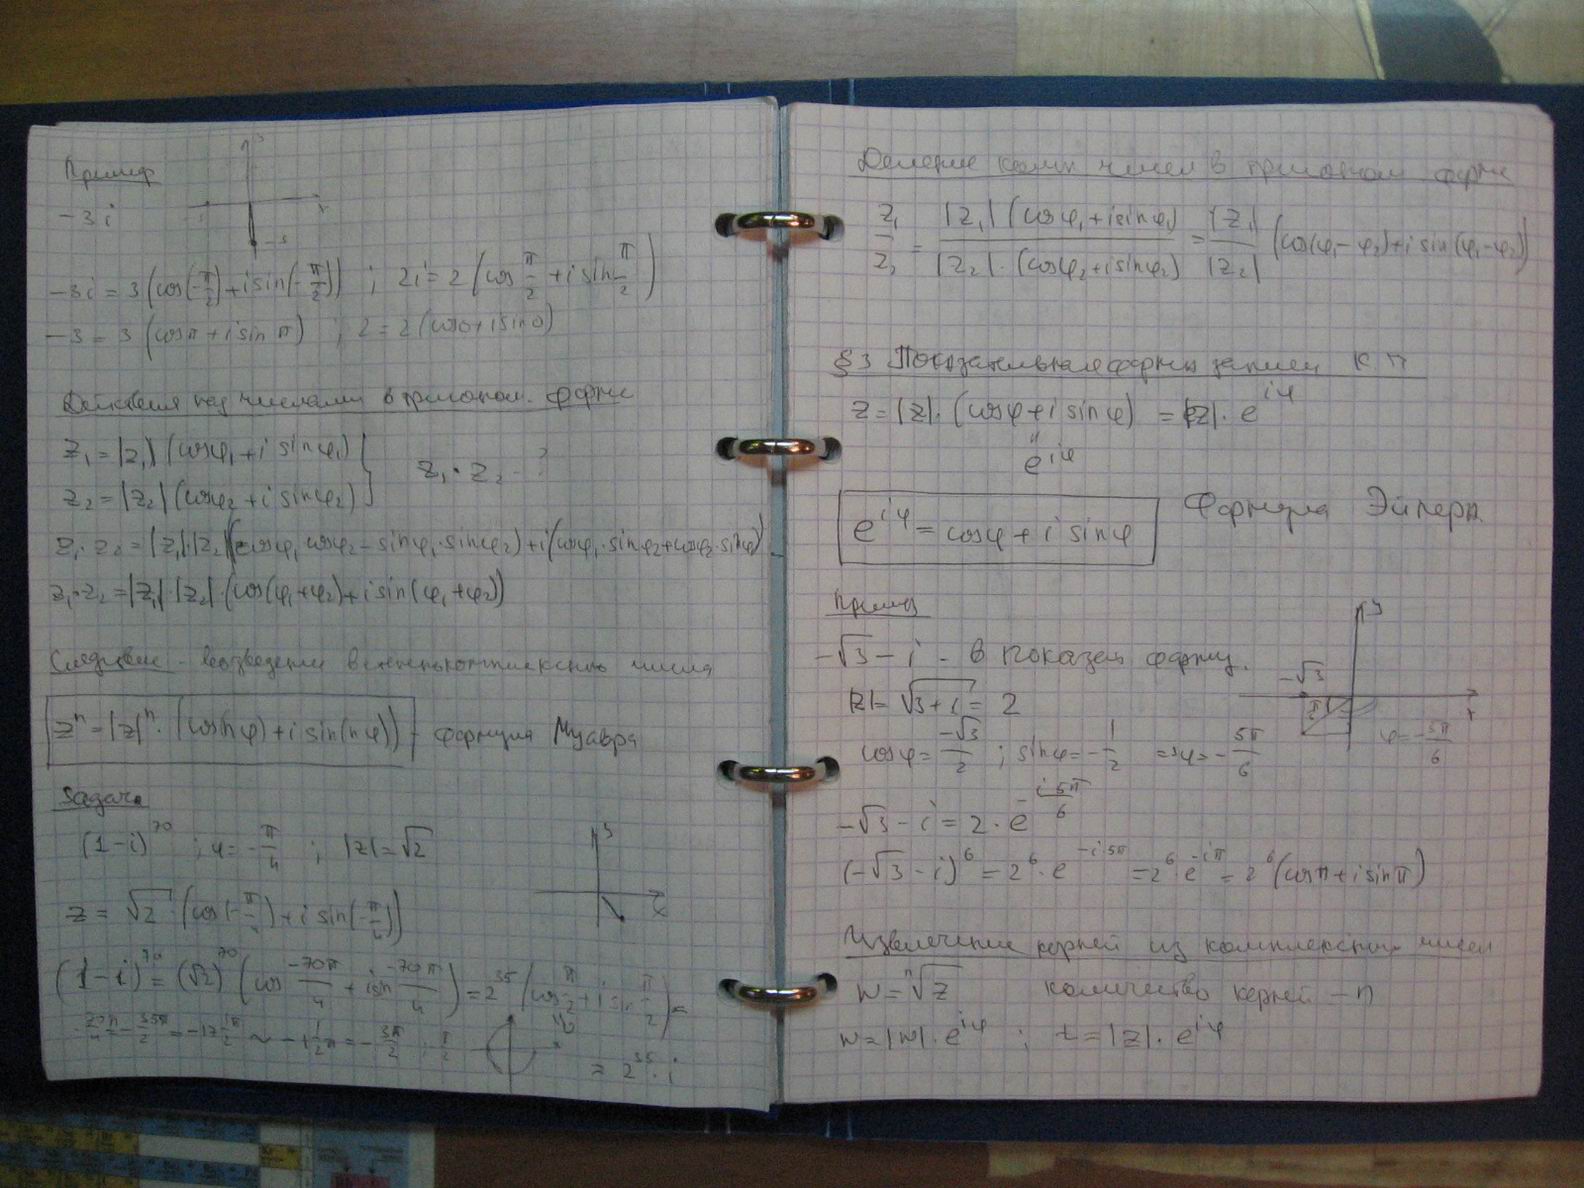 Пример
y
x
-3
-3i
-3i = 3(cos(-π/2)+i sin(-π/2)) ; 2i = 2(cos π/2 + i sin π/2)
-3 = 3(cos π + i sin π) ; 2 = 2(cos 0 + i sin 0)
Действия над числами в тригоном. форме
z₁ = |z₁|(cosφ₁ + i sinφ₁)
z₂ = |z₂|(cosφ₂ + i sinφ₂) } z₁·z₂ - ?
z₁·z₂ = |z₁|·|z₂|((cosφ₁ cosφ₂ - sinφ₁·sinφ₂) + i(cosφ₁·sinφ₂ + cosφ₂·sinφ₁)
z₁·z₂ = |z₁|·|z₂|·(cos(φ₁+φ₂) + i sin(φ₁+φ₂))
Следствие - возведение в степень комплексного числа
zⁿ = |z|ⁿ·(cos nφ) + i sin(nφ)) - формула Муавра
Задача
(1-i)⁷⁰ ; φ = -π/4 ; |z| = √2
y
x
z = √2·(cos(-π/4) + i sin(-π/4))
(1-i)⁷⁰ = (√2)⁷⁰(cos -70π/4 + i sin -70π/4) = 2³⁵(cos π/2 + i sin π/2) =
-70π/4 = -35π/2 = -17 1/2 π ~ -1 1/2 π = -3π/2 ; π/2
= 2³⁵·i
Деление комп чисел в тригоном форме
z₁/z₂ = |z₁|(cosφ₁ + i sinφ₁)/|z₂|·(cosφ₂ + i sinφ₂) = |z₁|/|z₂| (cos(φ₁-φ₂) + i sin(φ₁-φ₂))
§3 Показательная форма записи К Ч
z = |z|·(cosφ + i sinφ) = |z|·e^iφ
"
e^iφ
e^iφ = cosφ + i sinφ Формула Эйлера
Пример
y
-√3 - i - в показат форму.
-√3
x
|z| = √3+1 = 2
cosφ = -√3/2 ; sinφ = -1/2 => φ = -5π/6
φ = -5π/6
-√3 - i = 2·e^-i5π/6
(-√3 - i)⁶ = 2⁶·e^-i5π = 2⁶·e^-iπ = 2⁶(cos π + i sin π)
Извлечение корней из комплексных чисел
w = ⁿ√z количество корней - n
w = |w|·e^iφ ; z = |z|·e^iφ